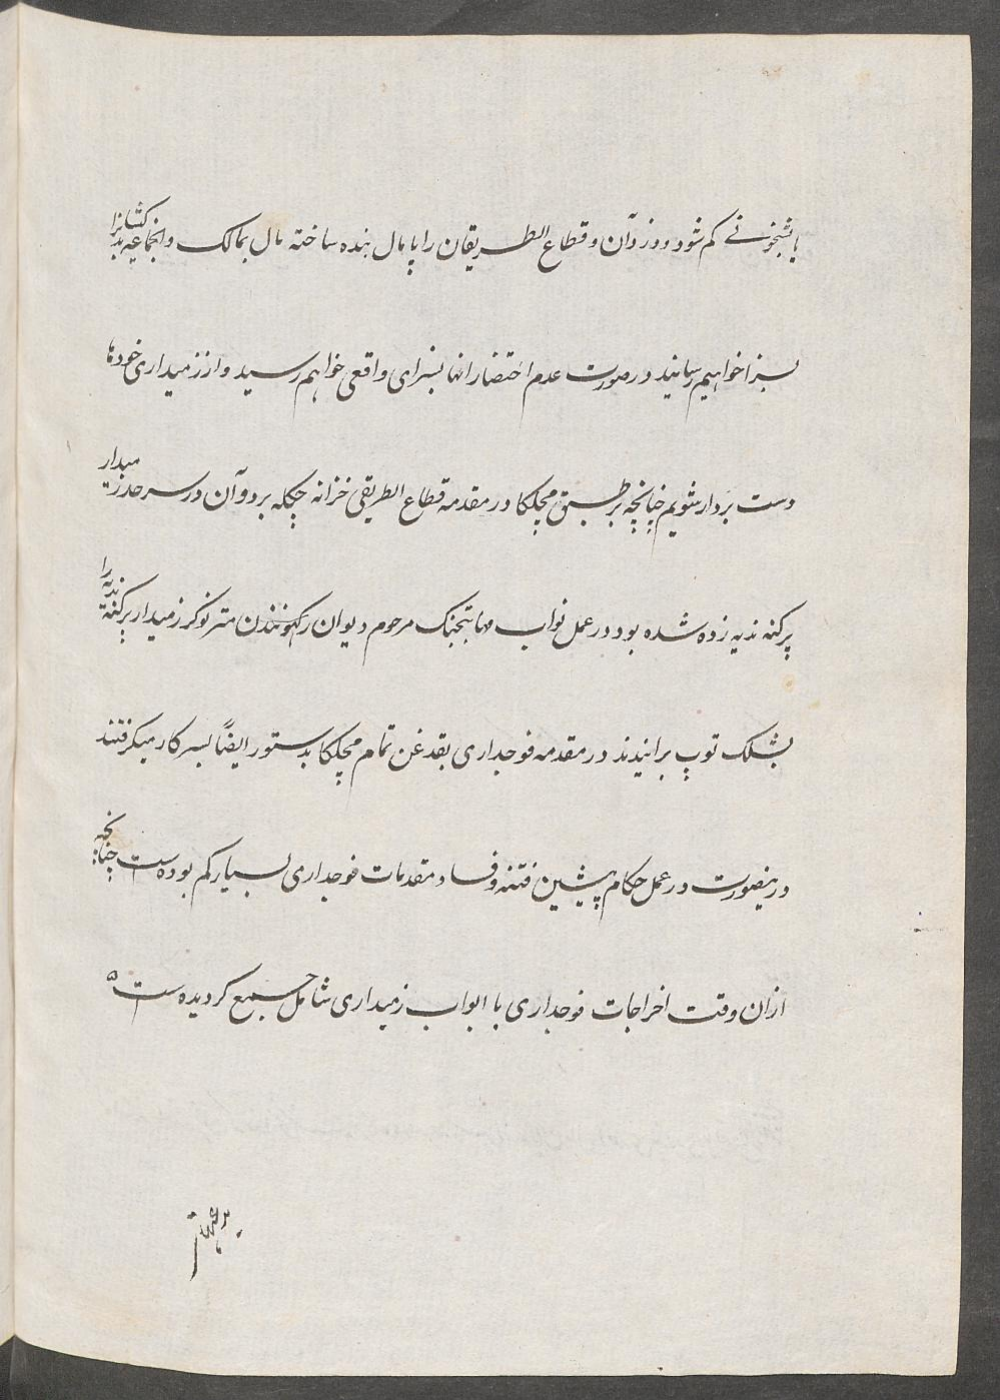 یا شبخونے کم شود و دزدوآن و قطاع الطریقان را پامال بنده ساخته مال بمالک و انجماعه
بسزا خواهیم رسانید در صورت عدم احتضار انها بسزای واقعی خواهم رسید و از زمیداری خودها
دست بردار شویم چنانچه بر طبق مچلکا در مقدمه قطاع الطریقی خزانه چکله بردوآن در سرحد زمیدار
پرکنه ندیه زده شده بود در عمل نواب مهابتجنک مرحوم دیوان رکهونندن متر نوکر زمیدار پرکنه ندیه را
بشلک توپ برانیدند در مقدمه فوجداری بقدغن تمام مچلکا بدستور ایضاً بسرکار میکرفتند
درینصورت در عمل حکام پیشین فتنه و فساد مقدمات فوجداری بسیار کم بوده است چنانچه
ازان وقت اخراجات فوجداری با ابواب زمیداری شامل جمع کردیده است